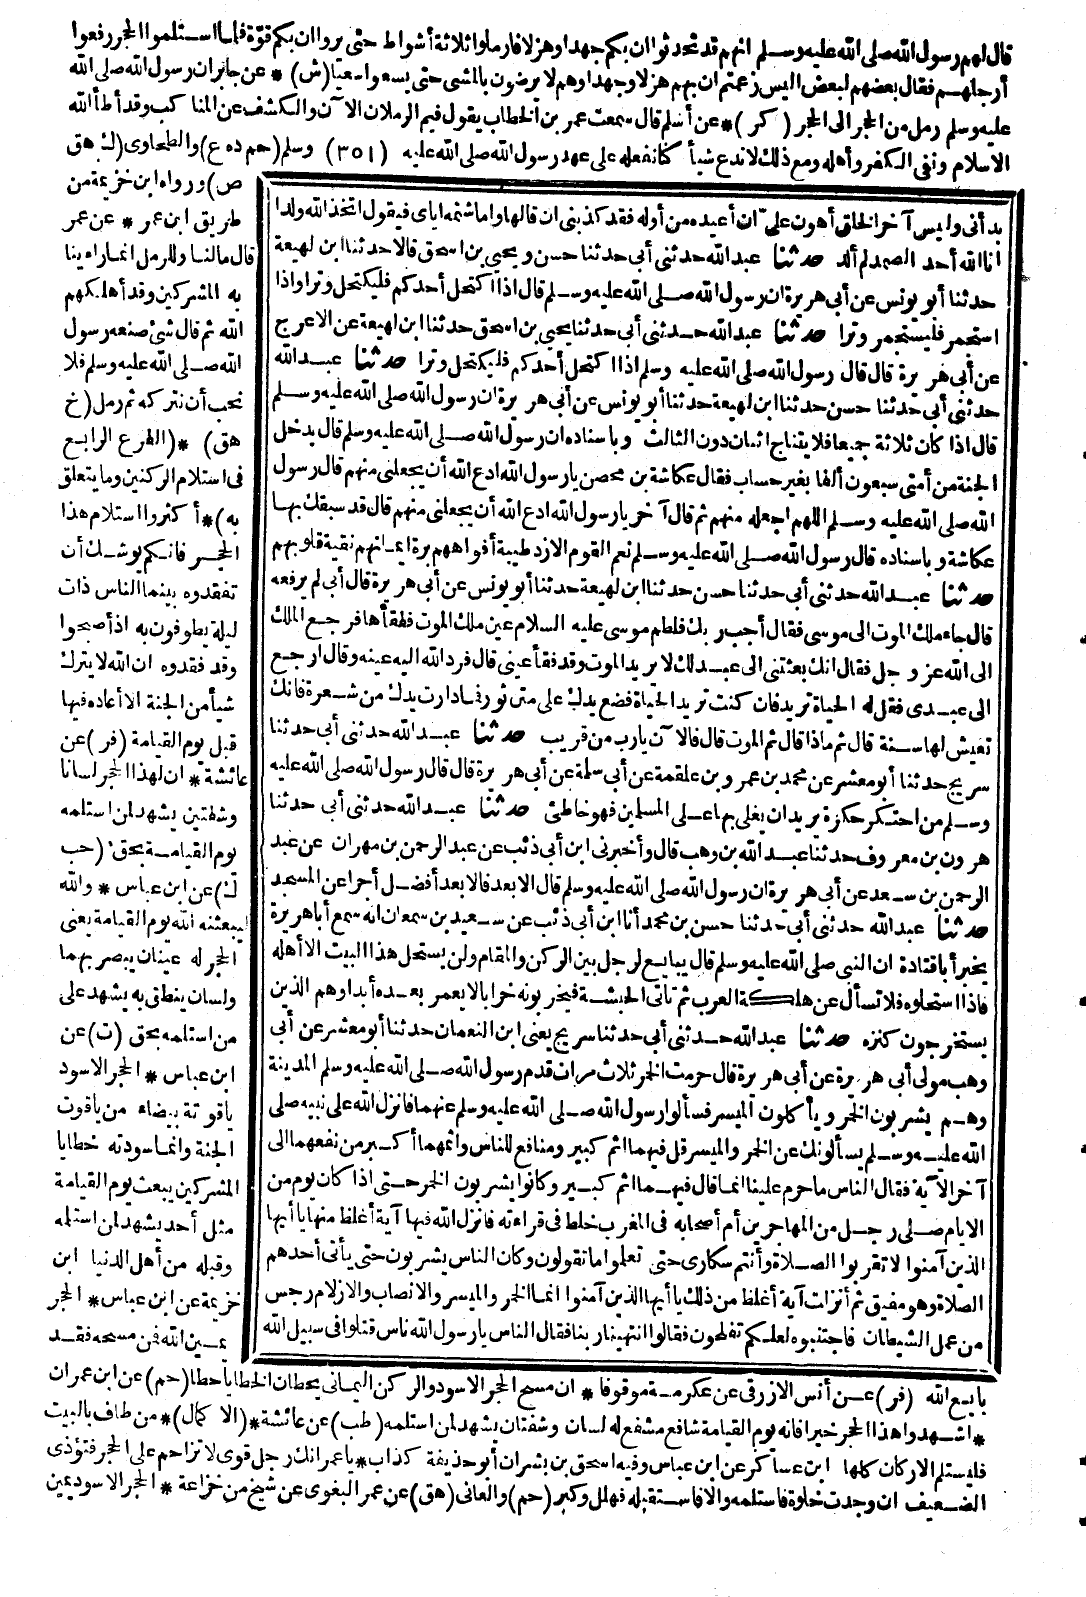 قال لهم رسول الله صلى الله عليه وسلم انهم قد تحدثوا ان بكم جهدا وهزلا فارملوا ثلاثة أشواط حتى يروا ان بكم قوة فلما استلموا الحجر رفعوا
أرجلهم فقال بعضهم لبعض اليس زعمتم ان بهم هزلا وجهدا وهم لا يرضون بالمشى حتى يسعوا سعيا (ش) * عن جابر ان رسول الله صلى الله
عليه وسلم رمل من الحجر الى الحجر (كر) * عن أسلم قال سمعت عمر بن الخطاب يقول فيم الرملان الآن والكشف عن المناكب وقد أطأ الله
الاسلام ونفى الكفر وأهله ومع ذلك لا ندع شيأ كنا نفعله على عهد رسول الله صلى الله عليه (٣٥١) وسلم (حم د ه ع) والطحاوى (ك هق
ص) ورواه ابن خزيمة من
طريق ابن عمر * عن عمر
قال مالنا وللرمل انما راءينا
به المشركين وقد أهلكهم
الله ثم قال شئ صنعه رسول
الله صلى الله عليه وسلم فلا
نحب أن نتركه ثم رمل (خ
هق) * (الفرع الرابع
فى استلام الركنين وما يتعلق
به) * أكثروا استلام هذا
الحجر فانكم يوشك أن
تفقدوه بينما الناس ذات
ليلة يطوفون به اذ أصبحوا
وقد فقدوه ان الله لا يترك
شيأ من الجنة الا أعاده فيها
قبل يوم القيامة (فر) عن
عائشة * ان لهذا الحجر لسانا
وشفتين يشهد لمن استلمه
يوم القيامة بحق (حب
ك) عن ابن عباس * والله
ليبعثنه الله يوم القيامة يعنى
الحجر له عينان يبصر بهما
ولسان ينطق به يشهد على
من استلمه بحق (ت) عن
ابن عباس * الحجر الاسود
ياقوتة بيضاء من ياقوت
الجنة وانما سودته خطايا
المشركين يبعث يوم القيامة
مثل أحد يشهد لمن استلمه
وقبله من أهل الدنيا ابن
خزيمة عن ابن عباس * الحجر
يمين الله فمن مسحه فقد
بدأنى وليس آخر الخلق أهون على ان أعيده من أوله فقد كذبنى ان قالها واما شتمه اياى فيقول اتخذ الله ولدا
انا الله أحد الصمد لم ألد حدثنا عبد الله حدثنى أبى حدثنا حسن ويحيى بن اسحق قالا حدثنا ابن لهيعة
حدثنا أبو يونس عن أبى هريرة ان رسول الله صلى الله عليه وسلم قال اذا اكتحل أحدكم فليكتحل وترا واذا
استجمر فليستجمر وترا حدثنا عبد الله حدثنى أبى حدثنا يحيى بن اسحق حدثنا ابن لهيعة عن الاعرج
عن أبى هريرة قال قال رسول الله صلى الله عليه وسلم اذا اكتحل أحدكم فليكتحل وترا حدثنا عبد الله
حدثنى أبى حدثنا حسن حدثنا ابن لهيعة حدثنا أبو يونس عن أبى هريرة ان رسول الله صلى الله عليه وسلم
قال اذا كان ثلاثة جميعا فلا يتناج اثنان دون الثالث وباسناده ان رسول الله صلى الله عليه وسلم قال يدخل
الجنة من أمتى سبعون ألفا بغير حساب فقال عكاشة بن محصن يا رسول الله ادع الله أن يجعلنى منهم قال رسول
الله صلى الله عليه وسلم اللهم اجعله منهم ثم قال آخر يا رسول الله ادع الله أن يجعلنى منهم قال قد سبقك بها
عكاشة وباسناده قال رسول الله صلى الله عليه وسلم نعم القوم الازد طيبة أفواههم برة ايمانهم نقية قلوبهم
حدثنا عبد الله حدثنى أبى حدثنا حسن حدثنا ابن لهيعة حدثنا أبو يونس عن أبى هريرة قال أبى لم يرفعه
قال جاء ملك الموت الى موسى فقال أجب ربك فلطم موسى عليه السلام عين ملك الموت ففقأها فرجع الملك
الى الله عز وجل فقال انك بعثتنى الى عبد لك لا يريد الموت وقد فقأ عينى قال فرد الله اليه عينه وقال ارجع
الى عبدى فقل له الحياة تريد فان كنت تريد الحياة فضع يدك على متن ثور فما دارت يدك من شعرة فانك
تعيش لها سنة قال ثم ماذا قال ثم الموت قال فالآن يارب من قريب حدثنا عبد الله حدثنى أبى حدثنا
سريج حدثنا أبو معشر عن محمد بن عمرو بن علقمة عن أبى سلمة عن أبى هريرة قال قال رسول الله صلى الله عليه
وسلم من احتكر حكرة يريد ان يغلى بها على المسلمين فهو خاطئ حدثنا عبد الله حدثنى أبى حدثنا
هرون بن معروف حدثنا عبد الله بن وهب قال وأخبرنى ابن أبى ذئب عن عبد الرحمن بن مهران عن عبد
الرحمن بن سعد عن أبى هريرة ان رسول الله صلى الله عليه وسلم قال الابعد فالابعد أفضل أجرا عن المسجد
حدثنا عبد الله حدثنى أبى حدثنا حسن بن محمد أنا ابن أبى ذئب عن سعيد بن سمعان انه سمع أبا هريرة
يخبر أبا قتادة ان النبى صلى الله عليه وسلم قال يبايع لرجل بين الركن والمقام ولن يستحل هذا البيت الا أهله
فاذا استحلوه فلا تسأل عن هلكة العرب ثم تأتى الحبشة فيخربونه خرابا لا يعمر بعده أبدا وهم الذين
يستخرجون كنزه حدثنا عبد الله حدثنى أبى حدثنا سريج يعنى ابن النعمان حدثنا أبو معشر عن أبى
وهب مولى أبى هريرة عن أبى هريرة قال حرمت الخمر ثلاث مرات قدم رسول الله صلى الله عليه وسلم المدينة
وهم يشربون الخمر ويأكلون الميسر فسألوا رسول الله صلى الله عليه وسلم عنهما فانزل الله على نبيه صلى
الله عليه وسلم يسألونك عن الخمر والميسر قل فيهما اثم كبير ومنافع للناس واثمهما أكبر من نفعهما الى
آخر الآية فقال الناس ما حرم علينا انما قال فيهما اثم كبير وكانوا يشربون الخمر حتى اذا كان يوم من
الايام صلى رجل من المهاجرين أم أصحابه فى المغرب خلط فى قراءته فانزل الله فيها آية أغلظ منها يا أيها
الذين آمنوا لا تقربوا الصلاة وأنتم سكارى حتى تعلموا ما تقولون وكان الناس يشربون حتى يأتى أحدهم
الصلاة وهو مفيق ثم أنزلت آية أغلظ من ذلك يا أيها الذين آمنوا انما الخمر والميسر والانصاب والازلام رجس
من عمل الشيطان فاجتنبوه لعلكم تفلحون فقالوا انتهينا ربنا فقال الناس يا رسول الله ناس قتلوا فى سبيل الله
بايع الله (فر) عن أنس الازرقى عن عكرمة موقوفا * ان مسح الحجر الاسود والركن اليمانى يحطان الخطايا حطا (حم) عن ابن عمر ان
* اشهدوا هذا الحجر خيرا فانه يوم القيامة شافع مشفع له لسان وشفتان يشهد لمن استلمه (طب) عن عائشة * (الاكمال) * من طاف بالبيت
فليستلم الاركان كلها ابن عساكر عن ابن عباس وفيه اسحق بن بشر ان أبو حذيفة كذاب * يا عمر انك رجل قوى لا تزاحم على الحجر فتؤذى
الضعيف ان وجدت خلوة فاستلمه والا فاستقبله فهلل وكبر (حم) والعدنى (هق) عن عمر البغوى عن شيخ من خزاعة * الحجر الاسود يمين